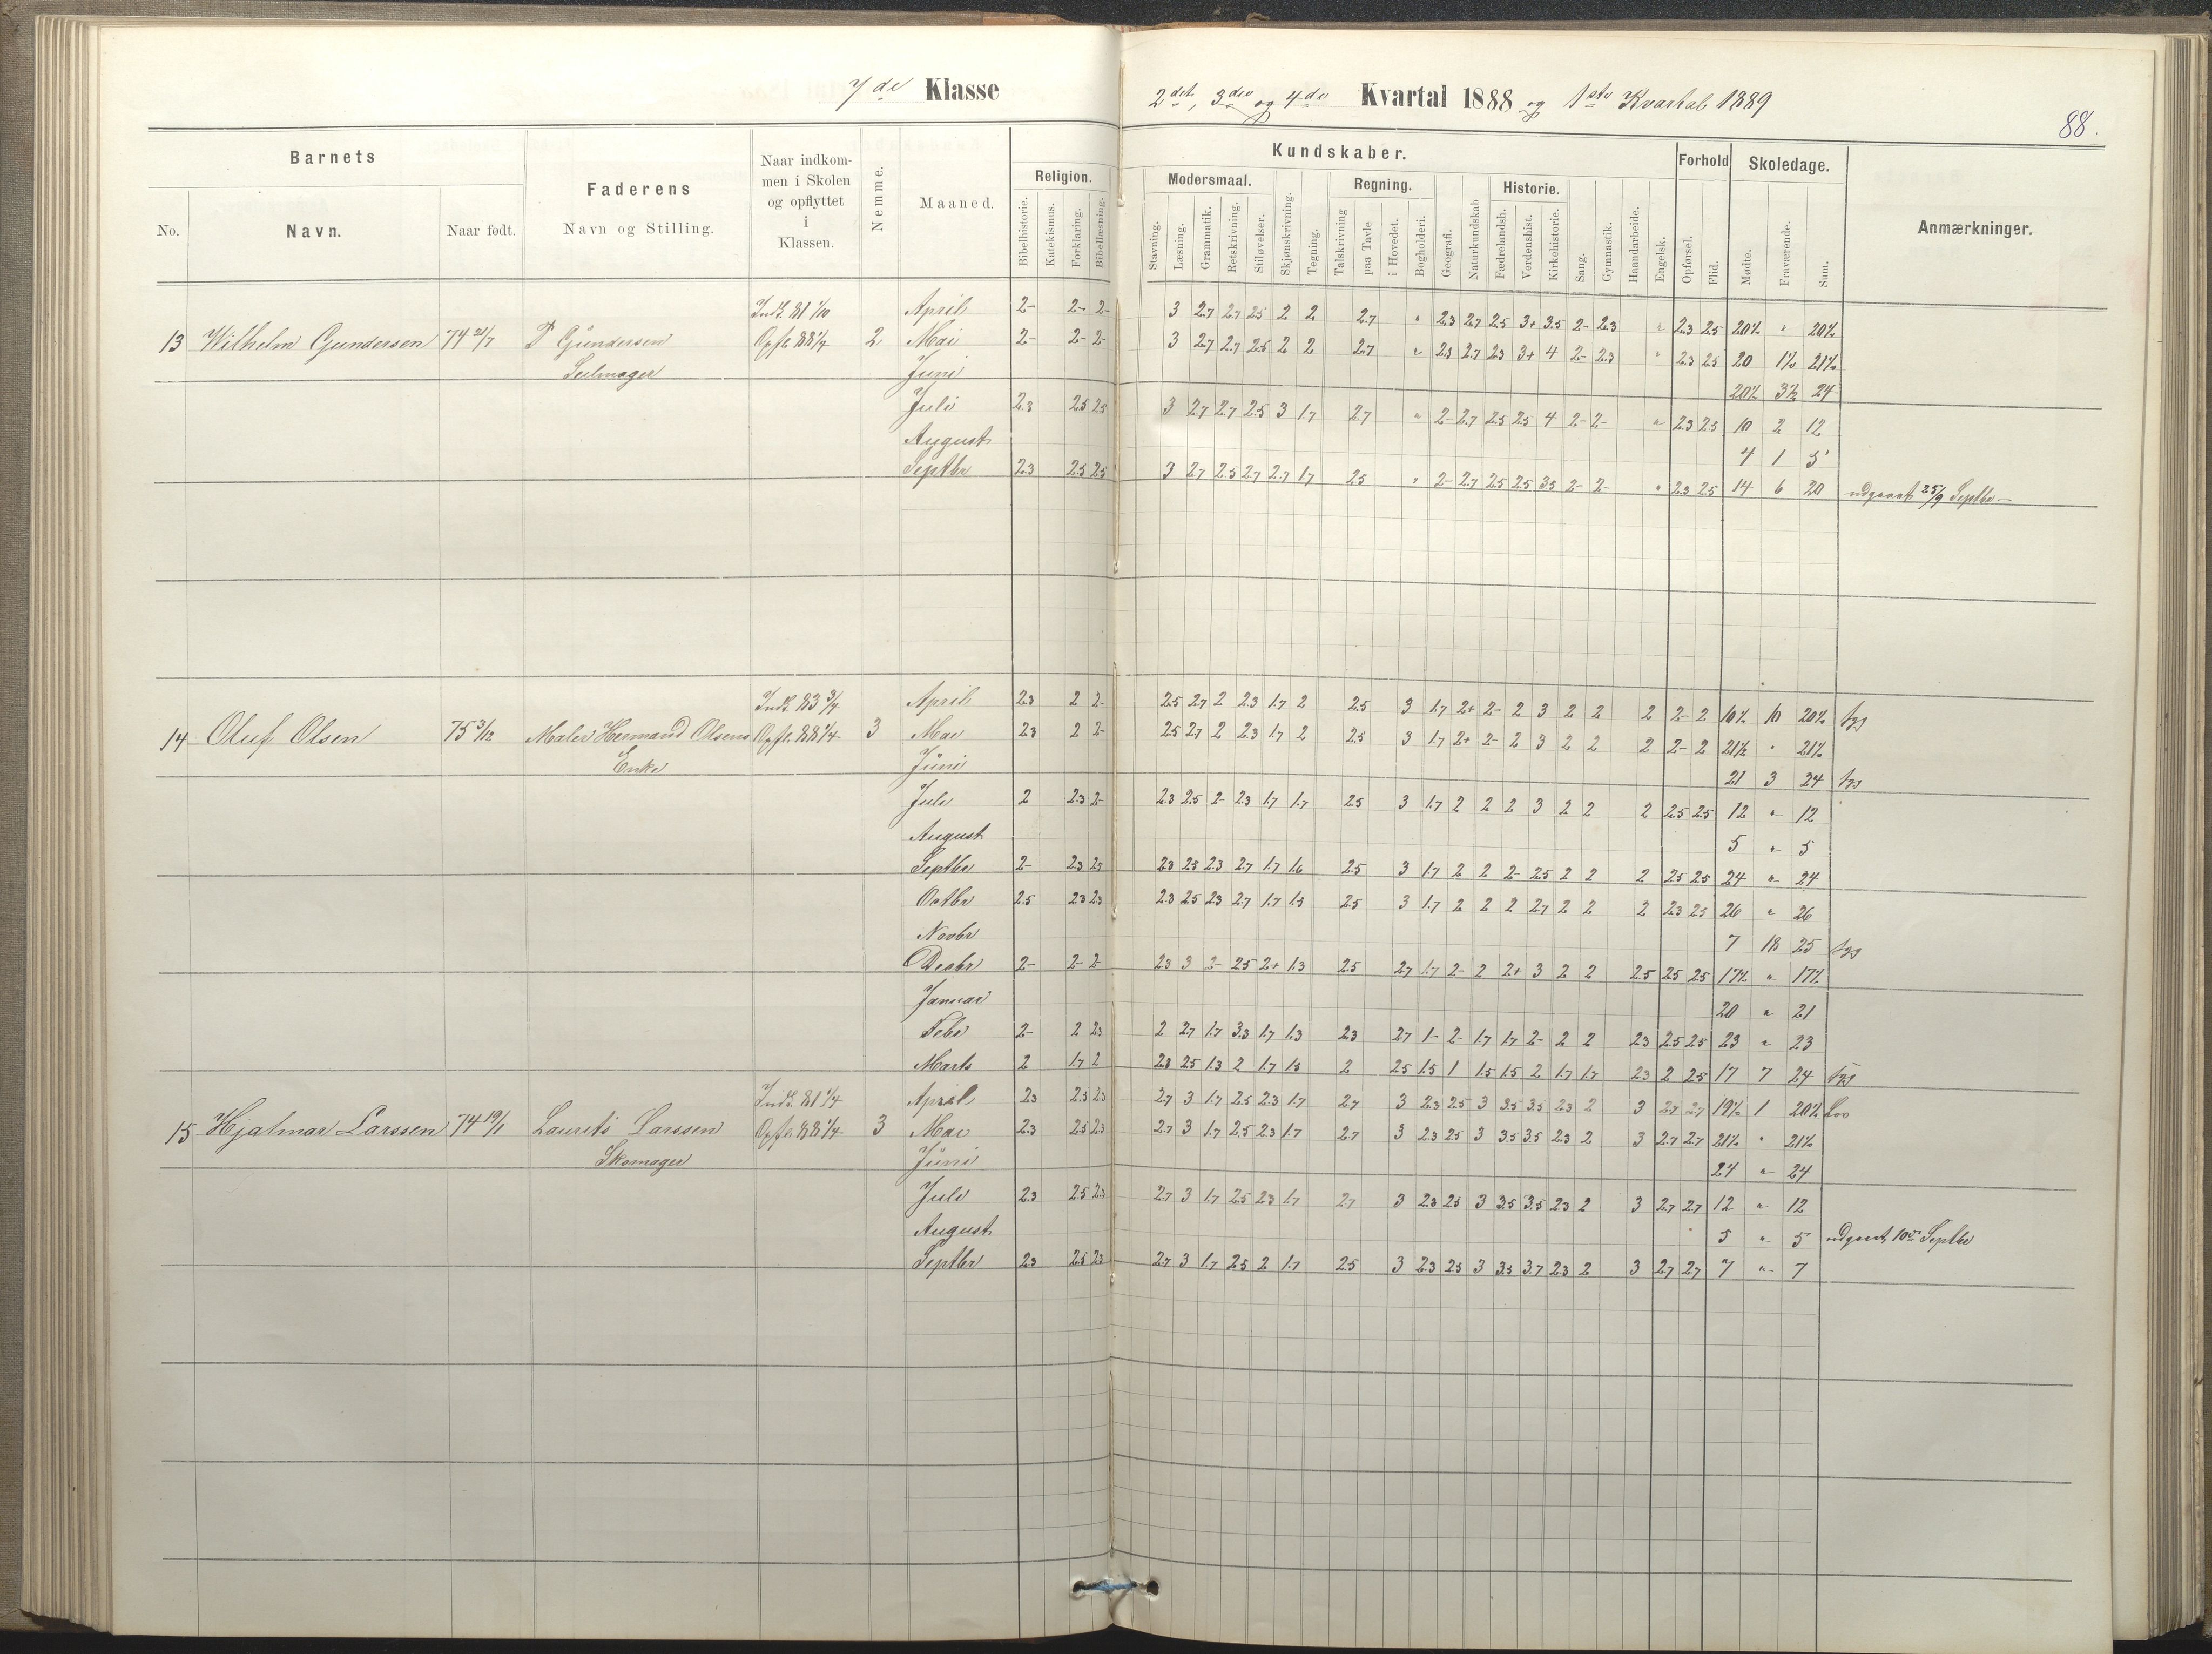 7de Klasse
2det, 3die og 4de Kvartal 1888 og 1ste Kvartal 1889
88.
Barnets
Faderens
Naar indkommen i Skolen og opflyttet i Klassen.
Nemme.
Maaned.
Religion.
Kundskaber.
Modersmaal.
Regning.
Historie.
Forhold
Skoledage.
Anmærkninger.
No.
Navn.
Naar født.
Navn og Stilling.
Bibelhistorie.
Katekismus.
Forklaring.
Bibellæsning.
Stavning.
Læsning.
Grammatik.
Retskrivning.
Stiløvelser.
Skjønskrivning.
Tegning.
Talskrivning
paa Tavle
i Hovedet.
Bogholderi.
Geografi.
Naturkundskab
Fædrelandsh.
Verdenshist.
Kirkehistorie.
Sang.
Gymnastik.
Haandarbeide.
Engelsk.
Opførsel.
Flid.
Mødte.
Fraværende.
Sum.
Indk. 81 1/10 April 2- 2- 2- 3 2.7 2.7 2.5 2 2 2.7 " 2.3 2.7 2.5 3+ 3.5 2- 2.3 " 2.3 2.5 20½ " 20½
13 Wilhelm Gundersen 74 21/7 P Gundersen Opfl. 88 1/4 2 Mai 2- 2- 2- 3 2.7 2.7 2.5 2 2 2.7 " 2.3 2.7 2.3 3+ 4 2- 2.3 " 2.3 2.5 20 1½ 21½
Seilmager Juni 20½ 3½ 24
Juli 2.3 2.5 2.5 3 2.7 2.7 2.5 3 1.7 2.7 " 2- 2.7 2.5 2.5 4 2- 2- " 2.3 2.5 10 2 12
August 4 1 5
Septbr 2.3 2.5 2.5 3 2.7 2.5 2.7 2.7 1.7 2.5 " 2- 2.7 2.5 2.5 3.5 2- 2- " 2.3 2.5 14 6 20 udgaaet 25/9 Septbr —
Indk. 83 3/4 April 2.3 2 2- 2.5 2.7 2 2.3 1.7 2 2.5 3 1.7 2+ 2- 2 3 2 2 2 2- 2 10½ 10 20½ sygs
14 Oluf Olsen 75 3/12 Maler Hermand Olsens Opfl. 88 1/4 3 Mai 2.3 2 2- 2.5 2.7 2 2.3 1.7 2 2.5 3 1.7 2+ 2- 2 3 2 2 2 2- 2 21½ " 21½
Enke Juni 21 3 24
Juli 2 2.3 2- 2.3 2.5 2- 2.3 1.7 1.7 2.5 3 1.7 2 2 2 3 2 2 2 2.5 2.5 12 " 12
August 5 " 5
Septbr 2- 2.3 2.5 2.3 2.5 2.3 2.7 1.7 1.6 2.5 3 1.7 2 2 2- 2.5 2 2 2 2.5 2.5 24 " 24
Octbr 2.5 2.3 2.3 2.3 2.5 2.3 2.7 1.7 1.5 2.5 3 1.7 2 2 2 2.7 2 2 2 2.3 2.5 26 " 26
Novbr 7 18 25
Decbr 2- 2- 2- 2.3 3 2- 2.5 2+ 1.3 2.5 2.7 1.7 2- 2 2+ 3 2 2 2.5 2.5 2.5 17½ " 17½
Januar 20 " 21
Febr 2- 2 2.3 2 2.7 1.7 3.3 1.7 1.3 2.3 2.7 1- 2- 1.7 1.7 2- 2 2 2.3 2.5 2.5 23 " 23
Marts 2 1.7 2 2.3 2.5 1.3 2 1.7 1.5 2 2.5 1.5 1 1.5 1.5 2 1.7 1.7 2.3 2 2.5 17 7 24
Indk. 81 1/4 April 2.3 2.5 2.3 2.7 3 1.7 2.5 2.3 1.7 2.7 3 2.3 2.5 3 3.5 3.5 2.3 2 3 2.7 2.7 19½ 1 20½
15 Hjalmar Larssen 74 19/1 Laurits Larssen Opfl. 88 1/4 3 Mai 2.3 2.5 2.3 2.7 3 1.7 2.5 2.3 1.7 2.7 3 2.3 2.5 3 3.5 3.5 2.3 2 3 2.7 2.7 21½ " 21½
Skomager Juni 24 " 24
Juli 2.3 2.5 2.3 2.7 3 1.7 2.5 2.3 1.7 2.7 3 2.3 2.5 3 3.5 3.5 2.3 2 3 2.7 2.7 12 " 12
August 5 " 5 udgaaet 10de Septbr
Septbr 2.3 2.5 2.3 2.7 3 1.7 2.5 2 1.7 2.5 3 2.3 2.5 3 3.5 3.7 2.3 2 3 2.7 2.7 7 " 7